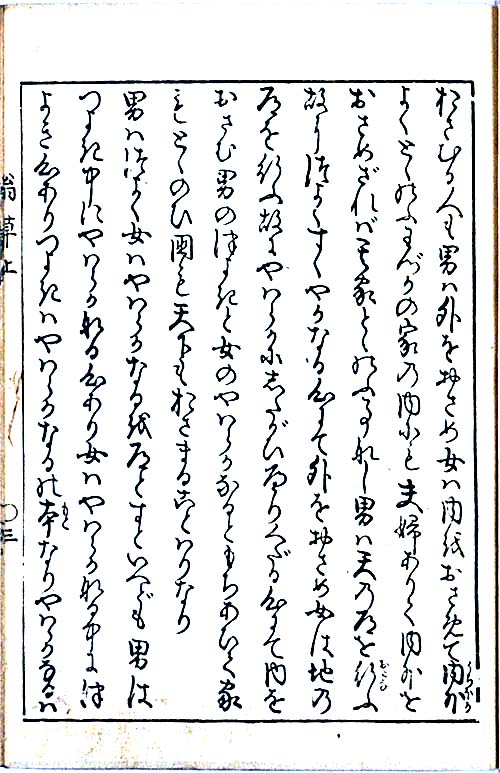 おさむる人も男ハ外をおさめ女ハ内をおさめて内外
よくとゝのふわづかの家の内にも夫婦ありて内外を
おさめざれバ其家とゝのふ事なし男ハ天の道を行ふ
故につよくすくやかなる心にて外をおさめ女は地の
道を行ふ故にやハらかにしたがひへりくだる心にて内を
おさむ男のつよきと女のやハらかなるともちあひて家
もとゝのひ国も天下もおさまることハりなり
男ハつよく女ハやハらかなる道とすといへども男は
つよき中にやハらかなる心あり女ハやハらかなる中につ
よき心ありつよきハやハらかなるの本なりやハらかなるハ
翁草上
〇三